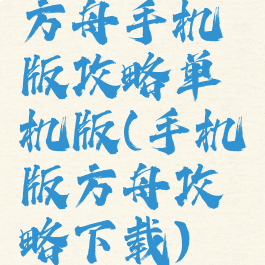 方舟手机
版攻略单
机版(手机
版方舟攻
略下载)